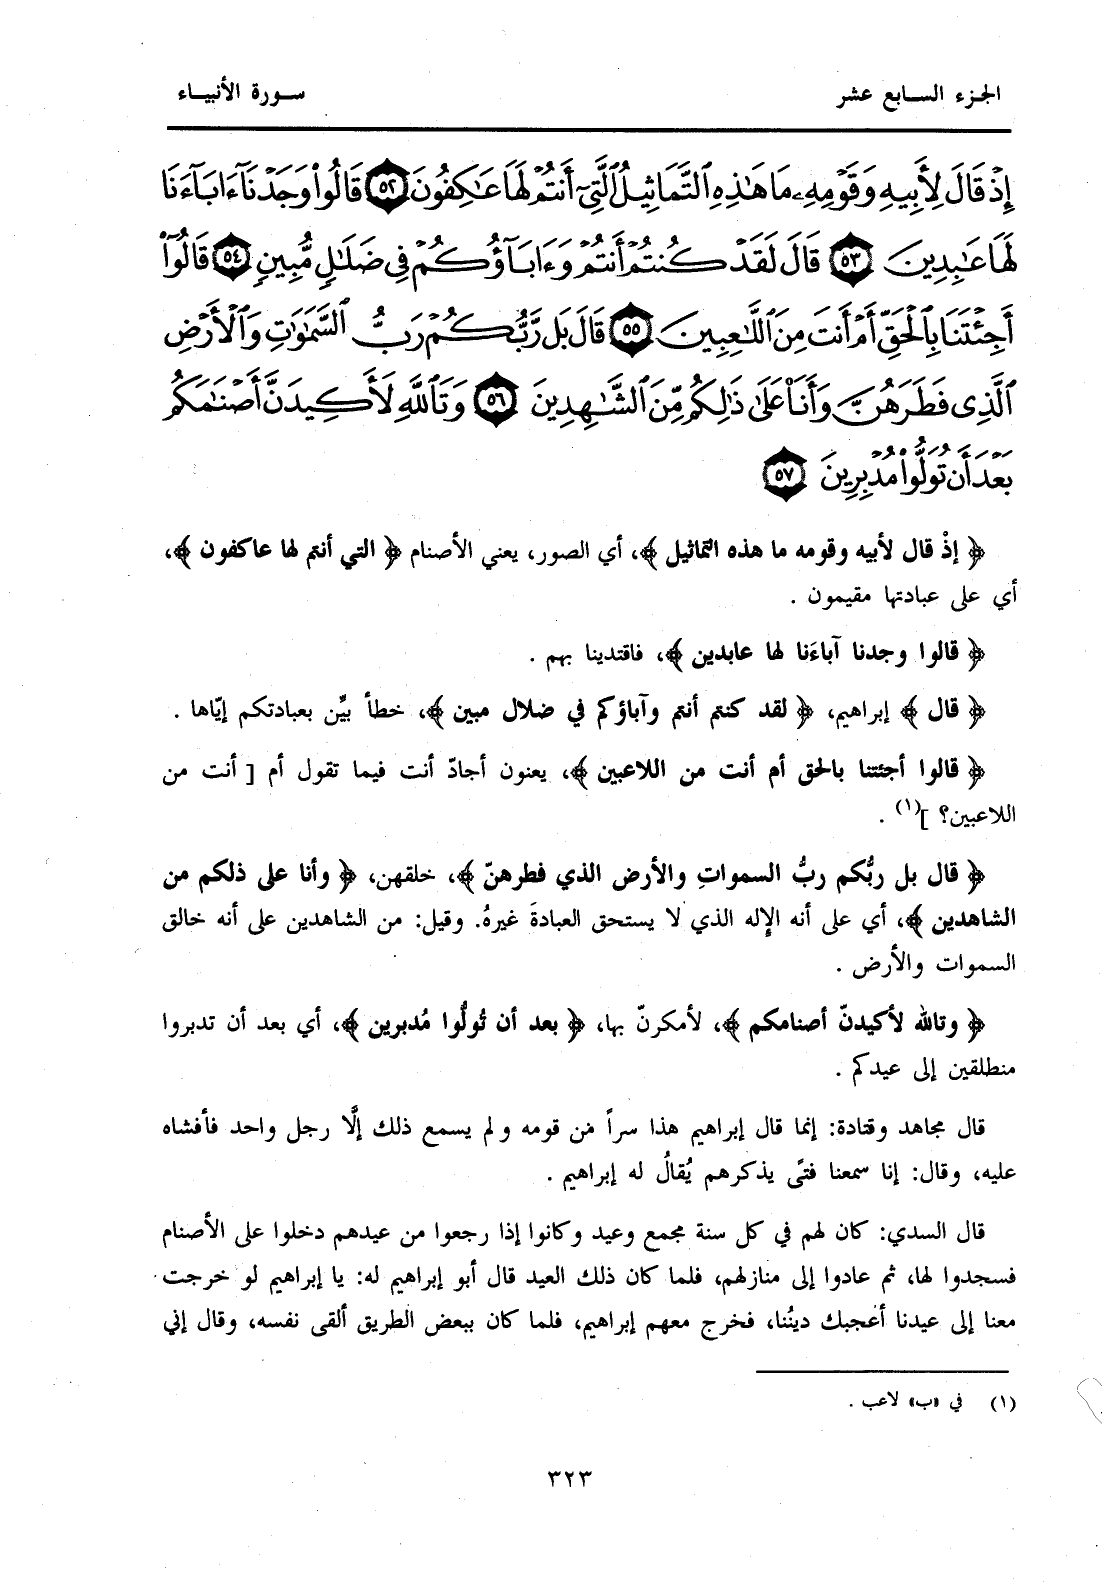 الجزء السابع عشر
سورة الأنبياء
إِذْ قَالَ لِأَبِيهِ وَقَوْمِهِۦ مَا هَـٰذِهِ ٱلتَّمَاثِيلُ ٱلَّتِىٓ أَنتُمْ لَهَا عَـٰكِفُونَ ٥٢ قَالُوا۟ وَجَدْنَآ ءَابَآءَنَا
لَهَا عَـٰبِدِينَ ٥٣ قَالَ لَقَدْ كُنتُمْ أَنتُمْ وَءَابَآؤُكُمْ فِى ضَلَـٰلٍ مُّبِينٍ ٥٤ قَالُوٓا۟
أَجِئْتَنَا بِٱلْحَقِّ أَمْ أَنتَ مِنَ ٱللَّـٰعِبِينَ ٥٥ قَالَ بَل رَّبُّكُمْ رَبُّ ٱلسَّمَـٰوَٰتِ وَٱلْأَرْضِ
ٱلَّذِى فَطَرَهُنَّ وَأَنَا۠ عَلَىٰ ذَٰلِكُم مِّنَ ٱلشَّـٰهِدِينَ ٥٦ وَتَٱللَّهِ لَأَكِيدَنَّ أَصْنَـٰمَكُم
بَعْدَ أَن تُوَلُّوا۟ مُدْبِرِينَ ٥٧
﴿ إذْ قال لأبيه وقومه ما هذه التماثيل ﴾، أي الصور، يعني الأصنام ﴿ التي أنتم لها عاكفون ﴾،
أي على عبادتها مقيمون .
﴿ قالوا وجدنا آباءَنا لها عابدين ﴾، فاقتدينا بهم .
﴿ قال ﴾ إبراهيم، ﴿ لقد كنتم أنتم وآباؤكم في ضلال مبين ﴾، خطأ بيِّن بعبادتكم إيّاها .
﴿ قالوا أجئتنا بالحق أم أنت من اللاعبين ﴾، يعنون أجادّ أنت فيما تقول أم [ أنت من
اللاعبين؟ ](١) .
﴿ قال بل ربُّكم ربُّ السموات والأرض الذي فطرهنّ ﴾، خلقهن، ﴿ وأنا على ذلكم من
الشاهدين ﴾، أي على أنه الإله الذي لا يستحق العبادةَ غيرهُ. وقيل: من الشاهدين على أنه خالق
السموات والأرض .
﴿ وتالله لأكيدنّ أصنامكم ﴾، لأمكرنّ بها، ﴿ بعد أن تُولُّوا مُدبرين ﴾، أي بعد أن تدبروا
منطلقين إلى عيدكم .
قال مجاهد وقتادة: إنما قال إبراهيم هذا سراً من قومه ولم يسمع ذلك إلَّا رجل واحد فأفشاه
عليه، وقال: إنا سمعنا فتًى يذكرهم يُقالُ له إبراهيم .
قال السدي: كان لهم في كل سنة مجمع وعيد وكانوا إذا رجعوا من عيدهم دخلوا على الأصنام
فسجدوا لها، ثم عادوا إلى منازلهم، فلما كان ذلك العيد قال أبو إبراهيم له: يا إبراهيم لو خرجت
معنا إلى عيدنا أعجبك دينُنا، فخرج معهم إبراهيم، فلما كان ببعض الطريق ألقى نفسه، وقال إني
(١) في «ب» لاعب .
٣٢٣